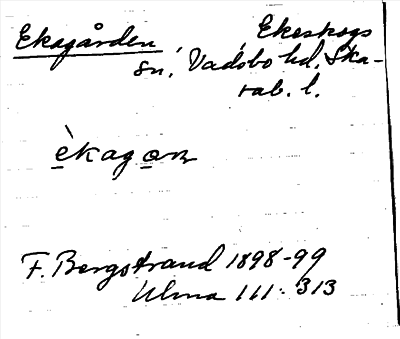 Ekagården Ekeskogs
sn, Vadsbo hd, Ska-
rab. l.
èkagɑn
F. Bergstrand 1898-99
Ulma 111:313